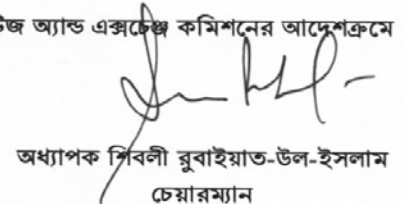 উজ অ্যান্ড এক্সচেঞ্জ কমিশনের আদেশক্রমে
অধ্যাপক শিবলী রুবাইয়াত-উল-ইসলাম
চেয়ারম্যান